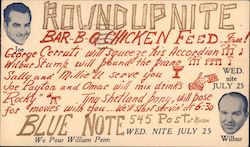 ROUNDUP NITE
BAR-B-Q CHICKEN FEED. Free!
Joe
George Cerruti will squeeze his Accordian !!!
Wilbur Stump will pound the piano !!! !!!
WED.
Sally and Millie'll serve you
nite
JULY 25
Joe Payton and Omar will mix drinks
"Rocky" Tiny Shetland Pony, will pose
for movies with you. We'll start servin' at 6:30
BLUE NOTE 545 Post at Mason
We Pour William Penn
WED. NITE JULY 25
Wilbur